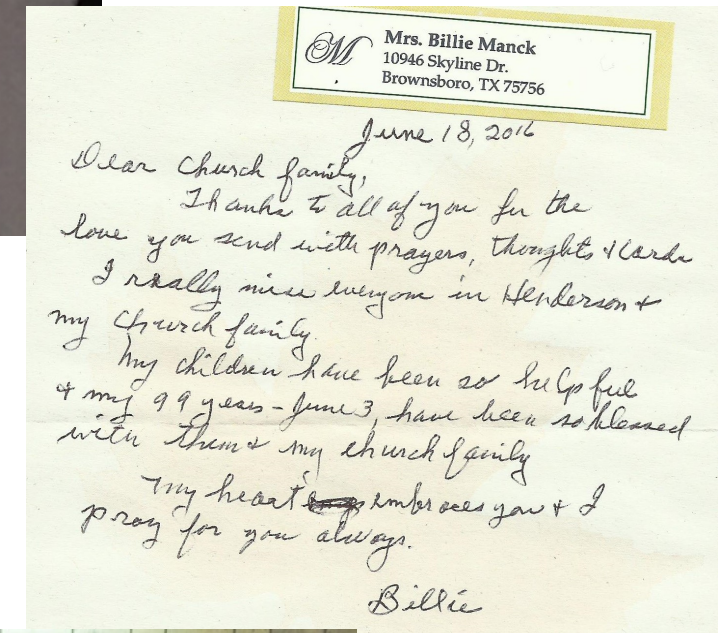 M
Mrs. Billie Manck
10946 Skyline Dr.
Brownsboro, TX 75756
June 18, 2016
Dear Church family,
Thanks to all of you for the
love you send with prayers, thoughts & cards
I really miss everyone in Henderson &
my Church family.
My children have been so helpful
& my 99 years - June 3, have been so blessed
with them & my church family
My heart embraces you & I
pray for you always.
Billie